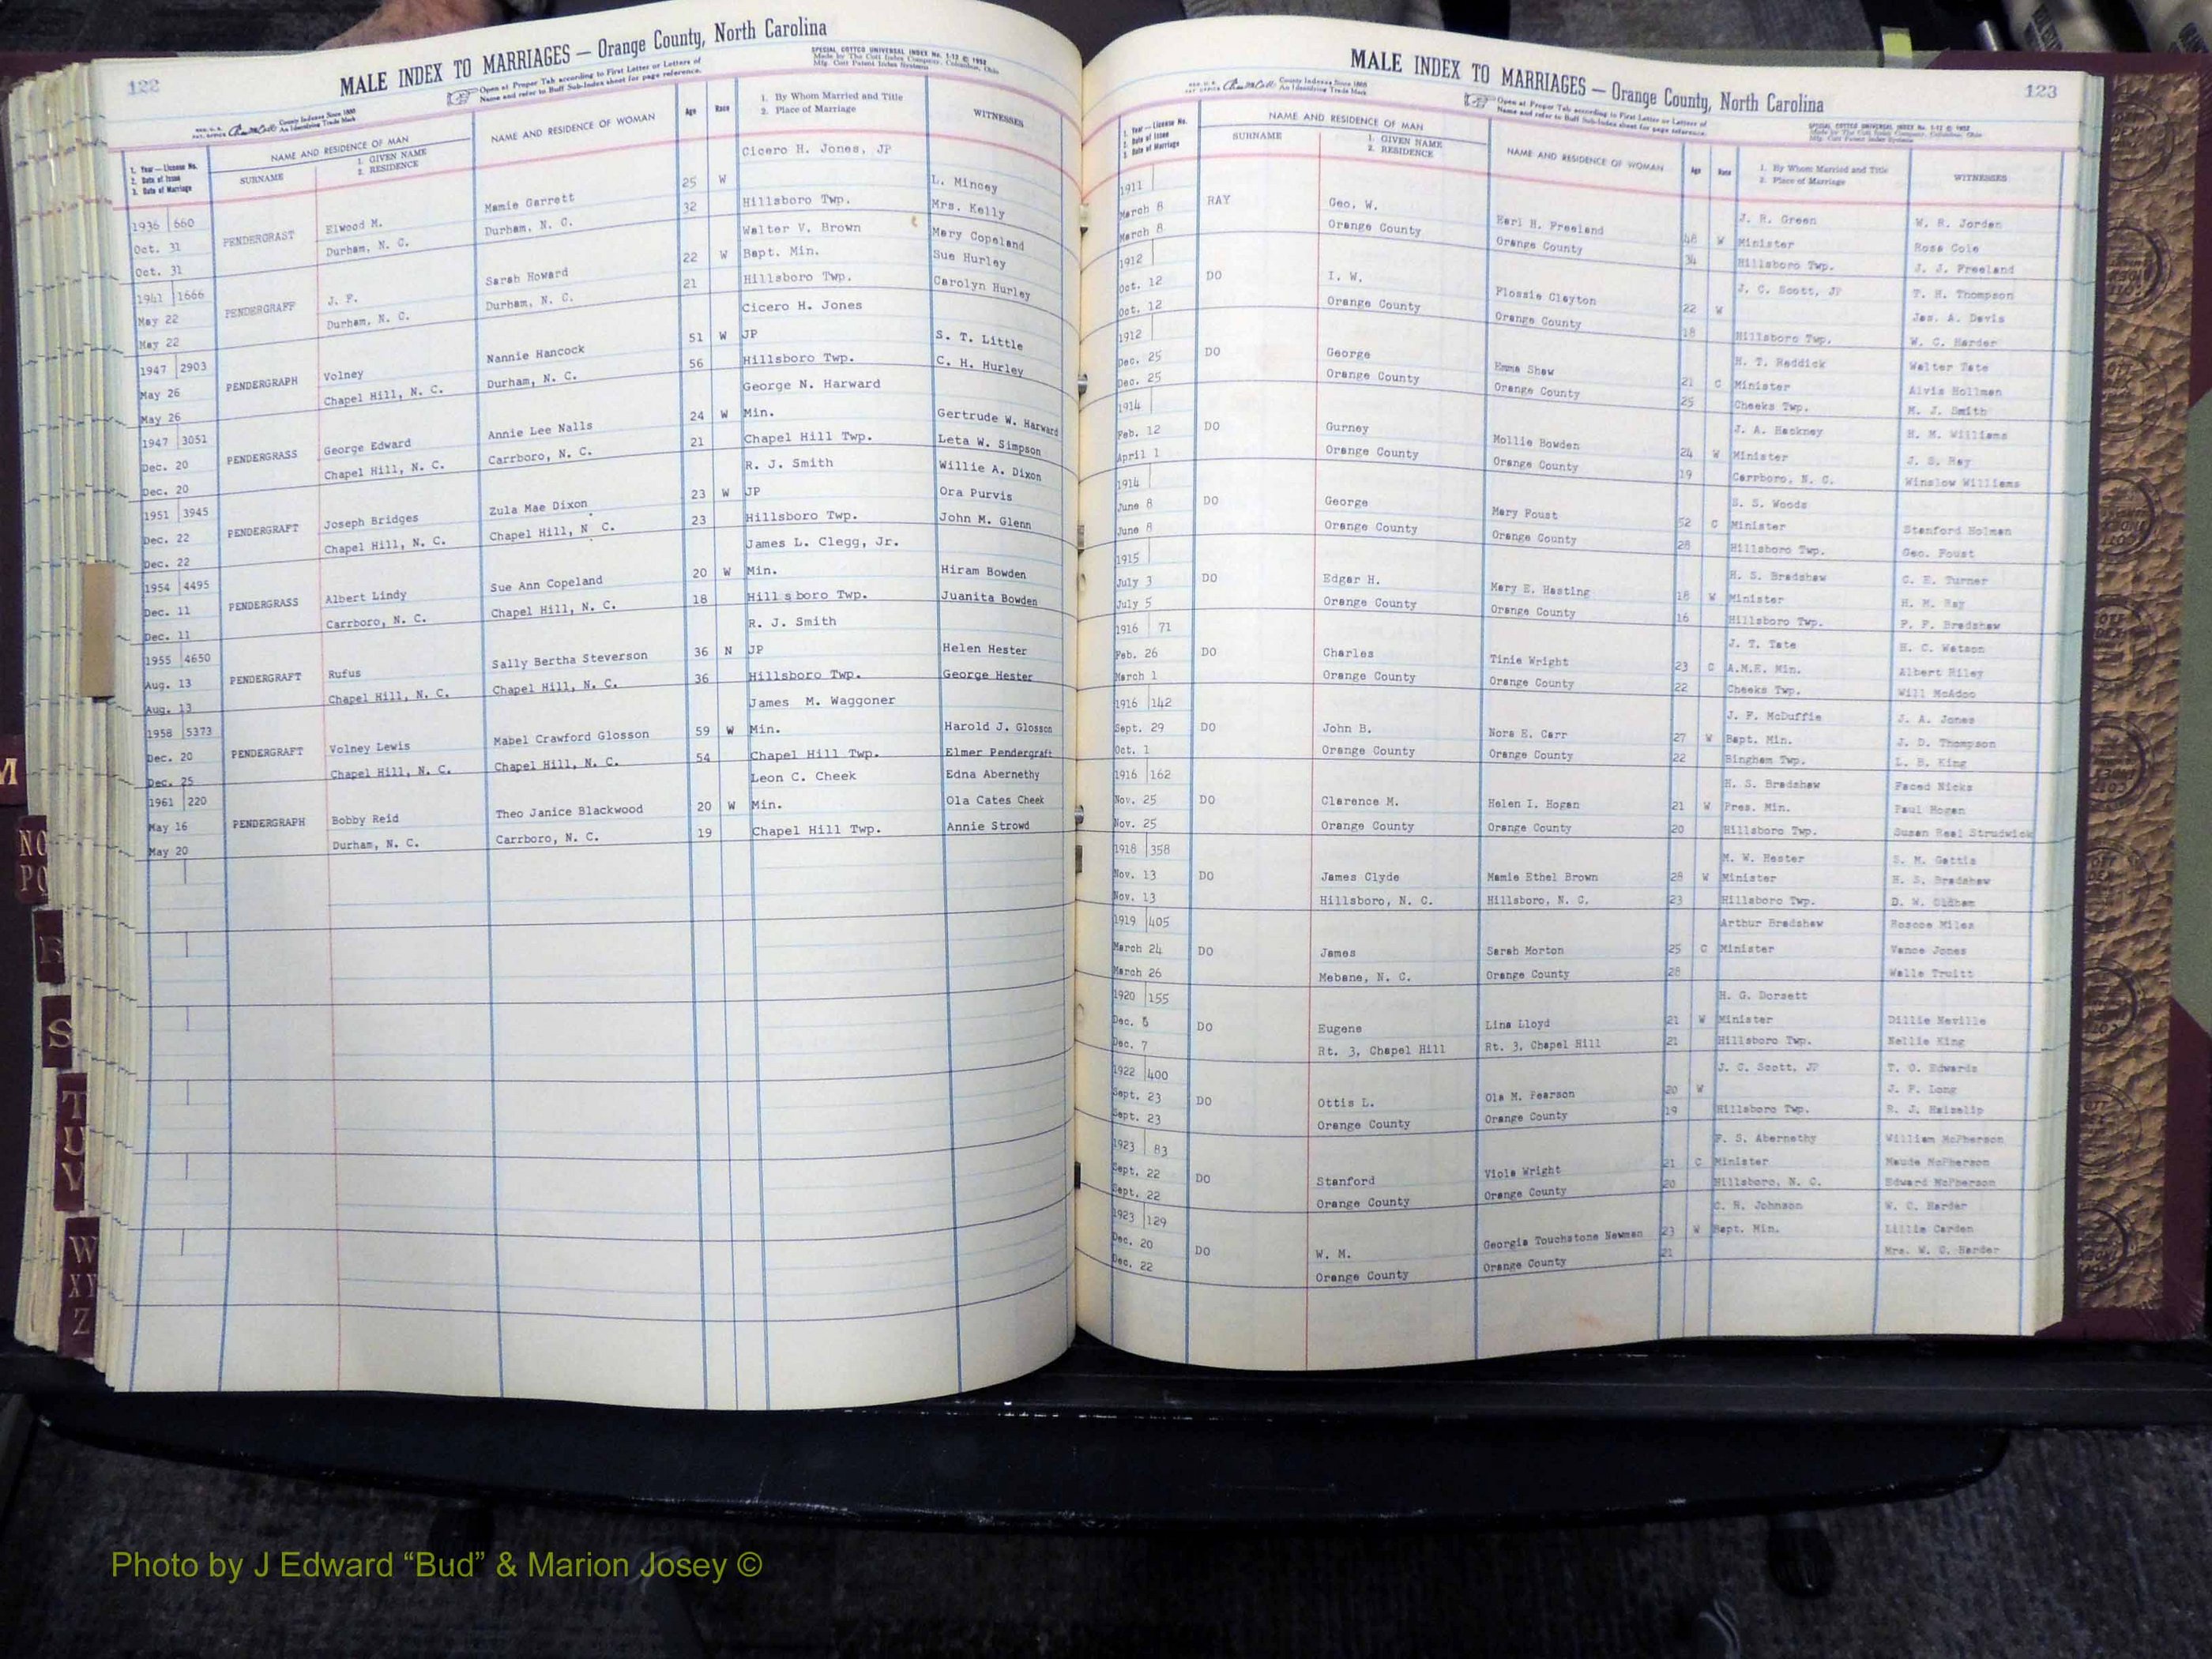 122
MALE INDEX TO MARRIAGES — Orange County, North Carolina
SPECIAL COTTCO UNIVERSAL INDEX No. 1-12 © 1952
Made by The Cott Index Company, Columbus, Ohio
Mfg. Cott Patent Index Systems
County Indexes Since 1888
An Identifying Trade Mark
Open at Proper Tab according to First Letter or Letters of
Name and refer to Buff Sub-Index sheet for page reference.
1. Year — License No.
2. Date of Issue
3. Date of Marriage
NAME AND RESIDENCE OF MAN
SURNAME
1. GIVEN NAME
2. RESIDENCE
NAME AND RESIDENCE OF WOMAN
Age
Race
1. By Whom Married and Title
2. Place of Marriage
WITNESSES
1936 660 PENDERGRAST Elwood M. Mamie Garrett 25 W Cicero H. Jones, JP L. Mincey
Oct. 31 Durham, N. C. Durham, N. C. 32 Hillsboro Twp. Mrs. Kelly
Oct. 31
1941 1666 PENDERGRAFF J. F. Sarah Howard 22 W Walter V. Brown Mary Copeland
May 22 Durham, N. C. Durham, N. C. 21 Bapt. Min. Sue Hurley
May 22 Hillsboro Twp. Carolyn Hurley
1947 2903 PENDERGRAPH Volney Nannie Hancock 51 W Cicero H. Jones
May 26 Chapel Hill, N. C. Durham, N. C. 56 JP S. T. Little
May 26 Hillsboro Twp. C. H. Hurley
1947 3051 PENDERGRASS George Edward Annie Lee Nalls 24 W George N. Harward
Dec. 20 Chapel Hill, N. C. Carrboro, N. C. 21 Min. Gertrude W. Harward
Dec. 20 Chapel Hill Twp. Leta W. Simpson
1951 3945 PENDERGRAFT Joseph Bridges Zula Mae Dixon 23 W R. J. Smith Willie A. Dixon
Dec. 22 Chapel Hill, N. C. Chapel Hill, N C. 23 JP Ora Purvis
Dec. 22 Hillsboro Twp. John M. Glenn
1954 4495 PENDERGRASS Albert Lindy Sue Ann Copeland 20 W James L. Clegg, Jr.
Dec. 11 Carrboro, N. C. Chapel Hill, N. C. 18 Min. Hiram Bowden
Dec. 11 Hill s boro Twp. Juanita Bowden
1955 4650 PENDERGRAFT Rufus Sally Bertha Steverson 36 N R. J. Smith
Aug. 13 Chapel Hill, N. C. Chapel Hill, N. C. 36 JP Helen Hester
Aug. 13 Hillsboro Twp. George Hester
1958 5373 PENDERGRAFT Volney Lewis Mabel Crawford Glosson 59 W James M. Waggoner
Dec. 20 Chapel Hill, N. C. Chapel Hill, N. C. 54 Min. Harold J. Glosson
Dec. 25 Chapel Hill Twp. Elmer Pendergraft
1961 220 PENDERGRAPH Bobby Reid Theo Janice Blackwood 20 W Leon C. Cheek Edna Abernethy
May 16 Durham, N. C. Carrboro, N. C. 19 Min. Ola Cates Cheek
May 20 Chapel Hill Twp. Annie Strowd
123
MALE INDEX TO MARRIAGES — Orange County, North Carolina
County Indexes Since 1888
An Identifying Trade Mark
Open at Proper Tab according to First Letter or Letters of
Name and refer to Buff Sub-Index sheet for page reference.
SPECIAL COTTCO UNIVERSAL INDEX No. 1-12 © 1952
Made by The Cott Index Company, Columbus, Ohio
Mfg. Cott Patent Index Systems
1. Year — License No.
2. Date of Issue
3. Date of Marriage
NAME AND RESIDENCE OF MAN
SURNAME
1. GIVEN NAME
2. RESIDENCE
NAME AND RESIDENCE OF WOMAN
Age
Race
1. By Whom Married and Title
2. Place of Marriage
WITNESSES
1911 RAY Geo. W. Earl H. Freeland 48 W J. R. Green W. R. Jorden
March 8 Orange County Orange County 34 Minister Rosa Cole
March 8 Hillsboro Twp. J. J. Freeland
1912 DO I. W. Flossie Clayton 22 W J. C. Scott, JP T. H. Thompson
Oct. 12 Orange County Orange County 18 Jas. A. Davis
Oct. 12 Hillsboro Twp. W. C. Harder
1912 DO George Emma Shaw 21 C H. T. Reddick Walter Tate
Dec. 25 Orange County Orange County 25 Minister Alvis Hollman
Dec. 25 Cheeks Twp. M. J. Smith
1914 DO Gurney Mollie Bowden 24 W J. A. Hackney H. M. Williams
Feb. 12 Orange County Orange County 19 Minister J. S. Ray
April 1 Carrboro, N. C. Winslow Williams
1914 DO George Mary Foust 52 C S. S. Woods
June 8 Orange County Orange County 28 Minister Stanford Holman
June 8 Hillsboro Twp. Geo. Foust
1915 DO Edgar H. Mary E. Hasting 18 W H. S. Bradshaw C. E. Turner
July 3 Orange County Orange County 16 Minister H. M. Ray
July 5 Hillsboro Twp. P. F. Bradshaw
1916 71 DO Charles Tinie Wright 23 C J. T. Tate H. C. Watson
Feb. 26 Orange County Orange County 22 A.M.E. Min. Albert Riley
March 1 Cheeks Twp. Will McAdoo
1916 142 DO John B. Nora E. Carr 27 W J. F. McDuffie J. A. Jones
Sept. 29 Orange County Orange County 22 Bapt. Min. J. D. Thompson
Oct. 1 Bingham Twp. L. B. King
1916 162 DO Clarence M. Helen I. Hogan 21 W H. S. Bradshaw Faced Nicks
Nov. 25 Orange County Orange County 20 Pres. Min. Paul Hogan
Nov. 25 Hillsboro Twp. Susan Real Strudwick
1918 358 DO James Clyde Mamie Ethel Brown 28 W M. W. Hester S. M. Gattis
Nov. 13 Hillsboro, N. C. Hillsboro, N. C. 23 Minister H. S. Bradshaw
Nov. 13 Hillsboro Twp. D. W. Oldham
1919 405 DO James Sarah Morton 25 C Arthur Bradshaw Roscoe Miles
March 24 Mebane, N. C. Orange County 28 Minister Vance Jones
March 26 Walle Truitt
1920 155 DO Eugene Lina Lloyd 21 W H. G. Dorsett
Dec. 6 Rt. 3, Chapel Hill Rt. 3, Chapel Hill 21 Minister Dillie Neville
Dec. 7 Hillsboro Twp. Nellie King
1922 400 DO Ottis L. Ola M. Pearson 20 W J. C. Scott, JP T. O. Edwards
Sept. 23 Orange County Orange County 19 J. F. Long
Sept. 23 Hillsboro Twp. R. J. Haizelip
1923 83 DO Stanford Viola Wright 21 C F. S. Abernethy William McPherson
Sept. 22 Orange County Orange County 20 Minister Maude McPherson
Sept. 22 Hillsboro, N. C. Edward McPherson
1923 129 DO W. M. Georgia Touchstone Newman 23 W C. H. Johnson W. C. Harder
Dec. 20 Orange County Orange County 21 Bapt. Min. Lillie Carden
Dec. 22 Mrs. W. C. Harder
M
NO
PQ
R
S
T
U
V
W
XY
Z
Photo by J Edward “Bud” & Marion Josey ©